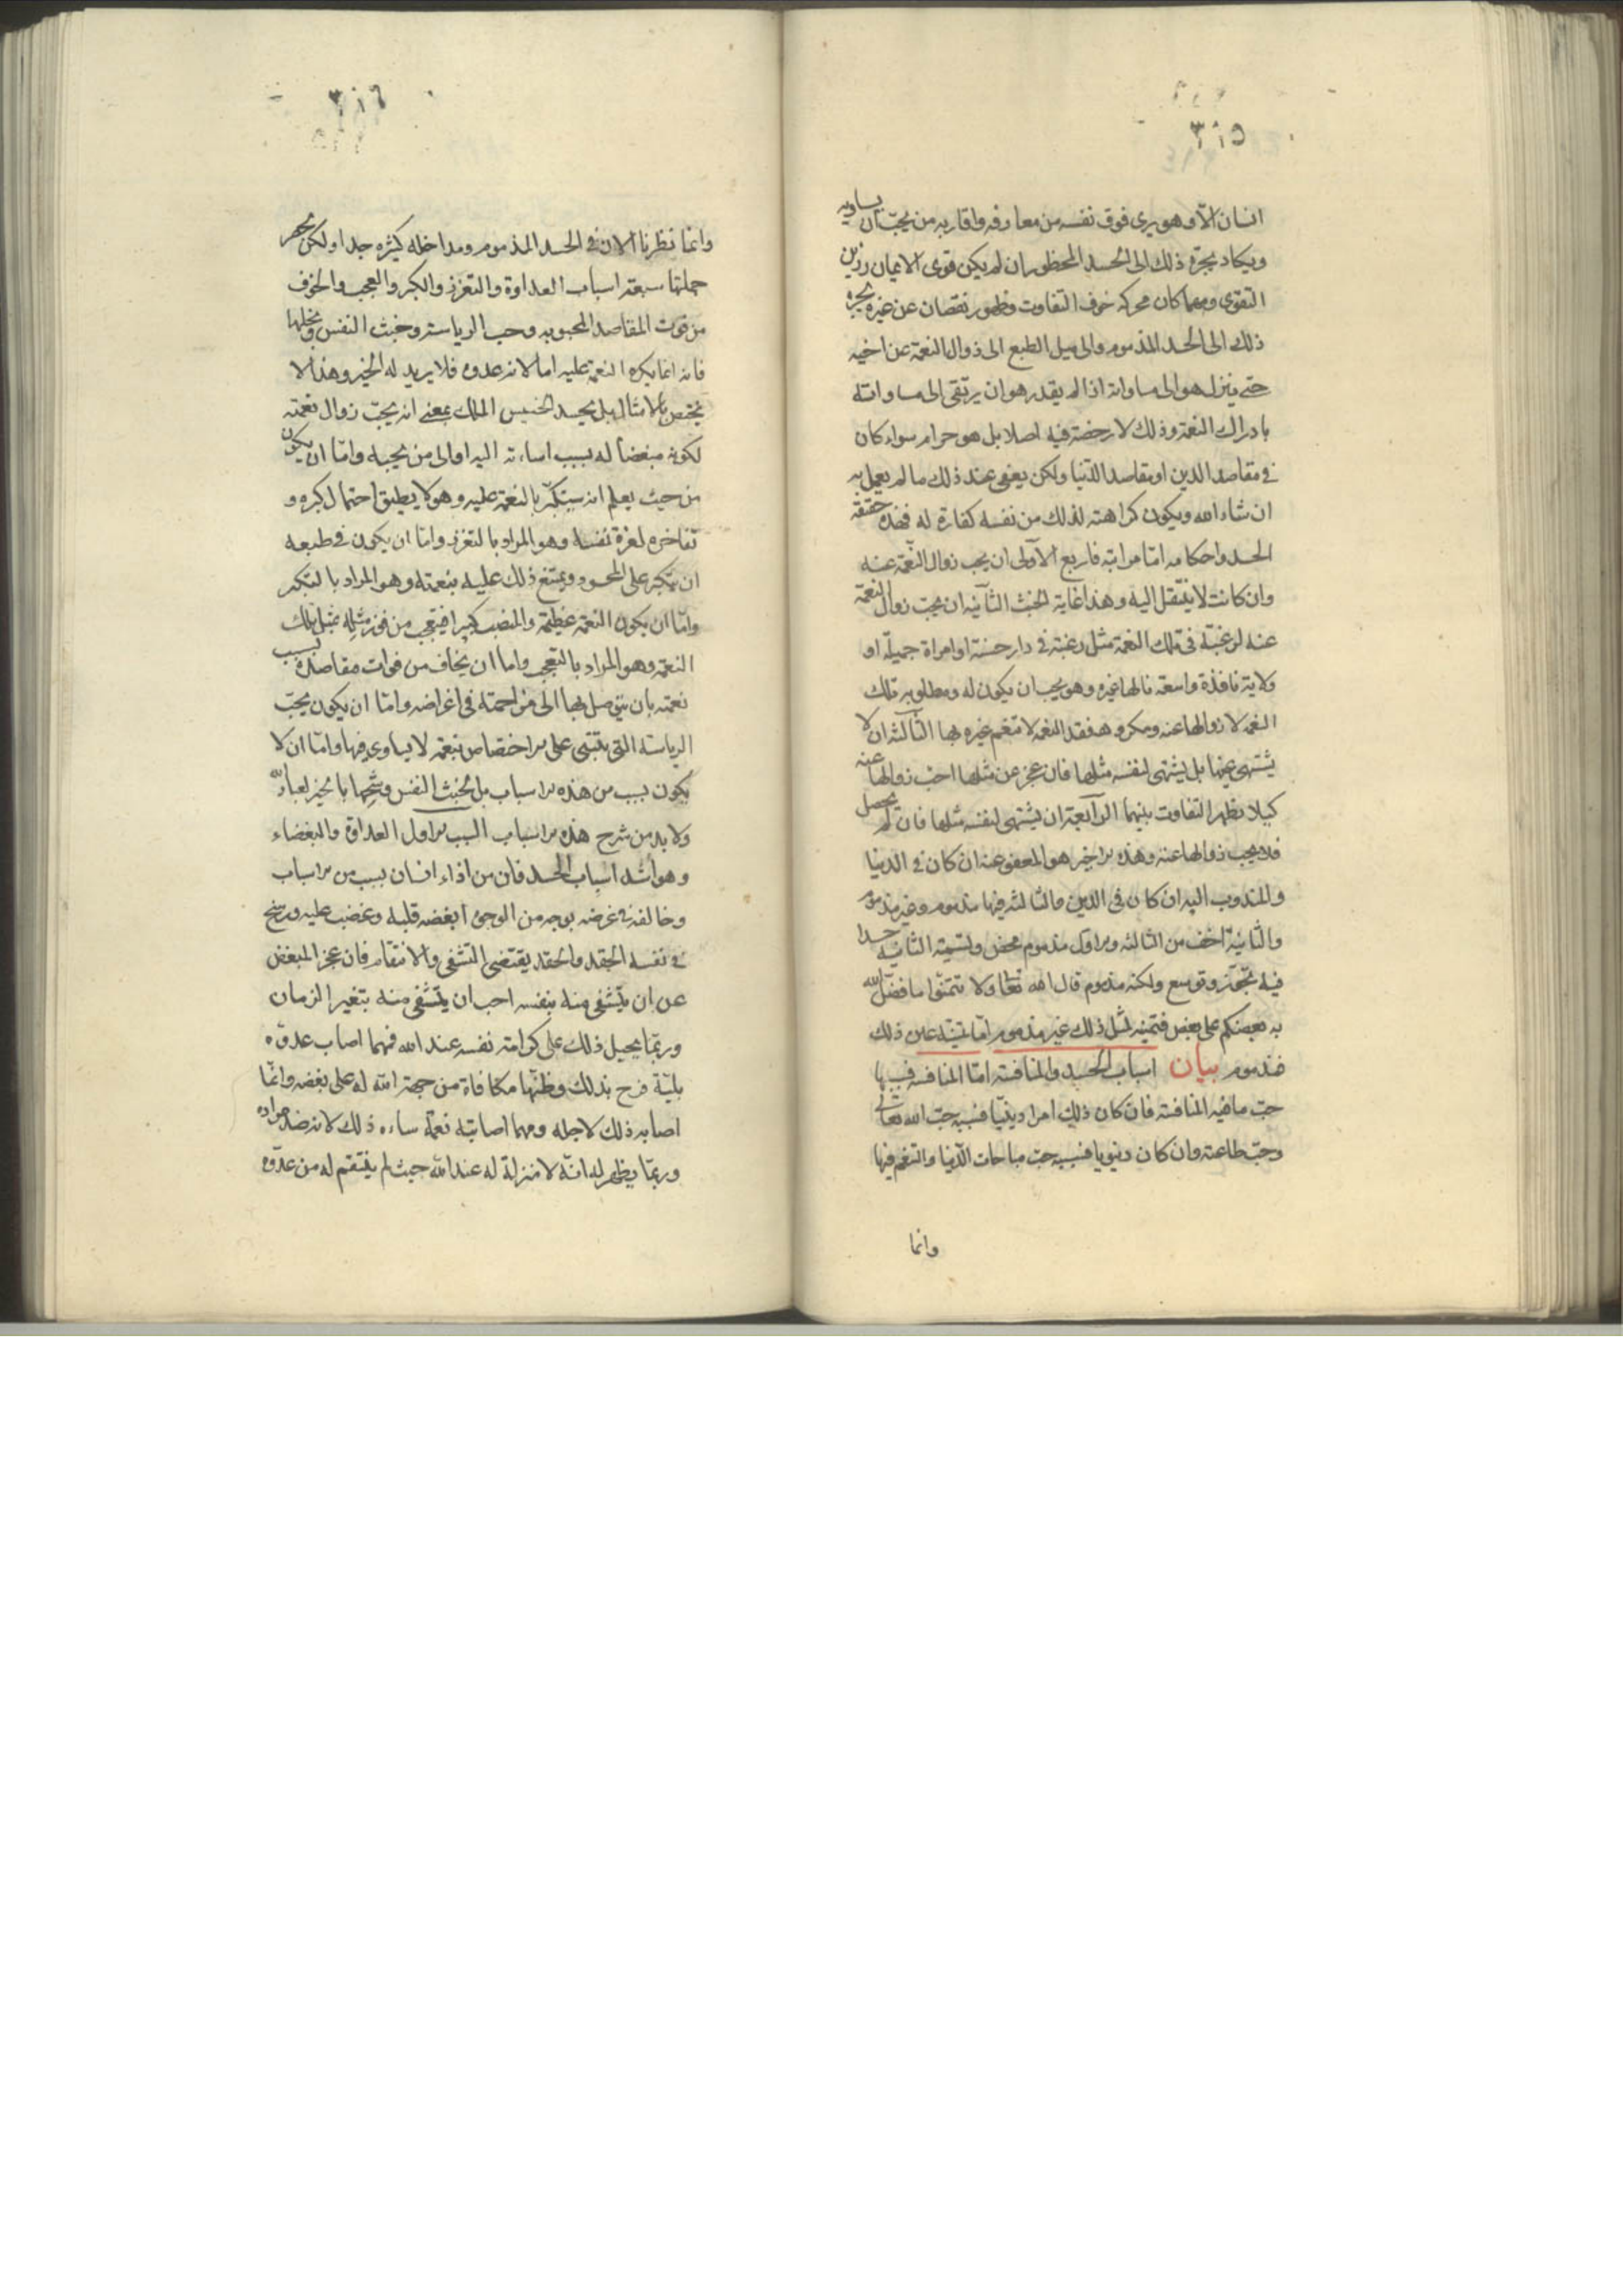 ٣١٥
انسان الّا وهو يرى فوق نفسه من معارفه واقاربه من يحبّ ان يساويه
ويكاد يجرّه ذلك الى الحسد المحظور ان لم يكن قوى الايمان رزين
التقوى ومهما كان محركه خوف التفاوت وظهور نقصان عن غيره يجره
ذلك الى الحسد المذموم والى ميل الطبع الى زوال النعمة عن اخيه
حتى ينزل هو الى مساواته اذا لم يقدر هو ان يرتقى الى مساواته
بادراك النعمة وذلك لا رخصة فيه اصلا بل هو حرام سواء كان
فى مقاصد الدين او مقاصد الدّنيا ولكن يعفى عند ذلك ما لم يعمل به
ان شاء الله ويكون كراهته لذلك من نفسه كفارة له فهذه حقيقة
الحسد واحكامه امّا مراتبه فاربع الاولى ان يحب زوال النّعمة عنه
وان كانت لا ينتقل اليه وهذا غاية الخبث الثّانية ان يحبّ زوال النعمة
عنه لرغبته فى تلك النعمة مثل رغبته فى دار حسنة او امراة جميلة او
ولاية نافذة واسعة نالها غيره وهو يحب ان يكون له ومطلوبه تلك
النعمة لا زوالها عنه ومكروهه فقد النعمة لا تنعم غيره بها الثّالثة ان لا
يشتهى عينها بل يشتهى لنفسه مثلها فان عجز عن مثلها احبّ زوالها عنه
كيلا يظهر التفاوت بينهما الرّابعة ان يشتهى لنفسه مثلها فان لم يحصل
فلا يحب زوالها عنه وهذه الاخير هو المعفو عنه ان كان فى الدنيا
والمندوب اليه ان كان فى الدين والثالثة فيها مذموم وغير مذموم
والثّانية اخف من الثالثه والاوّل مذموم محض وتسمية الثانية حسدا
فيه تجوّز وتوسع ولكنه مذموم قال الله تعالى ولا تتمنّوا ما فضّل الله
به بعضكم على بعض فتمنيه لمثل ذلك غير مذموم امّا تمنيّه عين ذلك
فمذموم بيان اسباب الحسد والمنافسة امّا المنافسة فسببها
حبّ ما فيه المنافسة فان كان ذلك امرا دينيّا فسببه حبّ الله تعالى
وحبّ طاعته وان كان دنيويا فسببه حبّ مباحات الدّنيا والتنعم فيها
وانما
٣١٦
وانما نظرنا الان فى الحسد المذموم ومداخله كثيره جدا ولكن يحصر
جملتها سبعة اسباب العداوة والتعزز والكبر والعجب والخوف
من فوت المقاصد المحبوبه وحب الرياسة وخبث النفس وبخلها
فانه انما يكره النعمة عليه اما لانه عدوه فلا يريد له الخير وهذا لا
يختص بالامثال بل يحسد الخسيس الملك بمعنى انه يحبّ زوال نعمته
لكونه مبغضا له بسبب اساءته اليه او الى من يحبه وامّا ان يكون
من حيث يعلم انه يستكبر بالنعمة عليه وهو لا يطيق احتمال كبره و
تفاخره لعزة نفسه وهو المراد بالتعزز وامّا ان يكون فى طبعه
ان يتكبر على المحسود ويمتنع ذلك عليه بنعمته وهو المراد بالتكبر
وامّا ان يكون النعمة عظيمة والمنصب كبيرا فيتعجب من فوز مثله بمثل تلك
النعمة وهو المراد بالتعجب واما ان يخاف من فوات مقاصده بسبب
نعمته بان يتوصل بها الى مزاحمته فى اغراضه وامّا ان يكون يحبّ
الرياسة التى يبتنى على الاختصاص بنعمة لا يساوى فيها وامّا ان لا
يكون بسبب من هذه الاسباب بل لخبث النفس وشحها بالخير لعباد الله
ولا بد من شرح هذه الاسباب السبب الاول العداوة والبغضاء
وهو اشد اسباب الحسد فان من اذاه انسان بسبب من الاسباب
وخالفه فى غرضه بوجه من الوجوه ابغضه قلبه وغضب عليه ورسخ
فى نفسه الحقد والحقد يقتضى التشفى والانتقام فان عجز المبغض
عن ان يتشفى منه بنفسه احب ان يتشفى منه بتغير الزمان
وربّما يحيل ذلك على كرامة نفسه عند الله فمهما اصاب عدوّه
بليّة فرح بذلك وظنّها مكافاة من جهة الله له على بغضه وانّما
اصابه ذلك لاجله ومهما اصابته نعمة ساءه ذلك لانه ضد مراده
وربّما يظهر له انّه لا منزلة له عند الله حيث لم ينتقم له من عدوّه